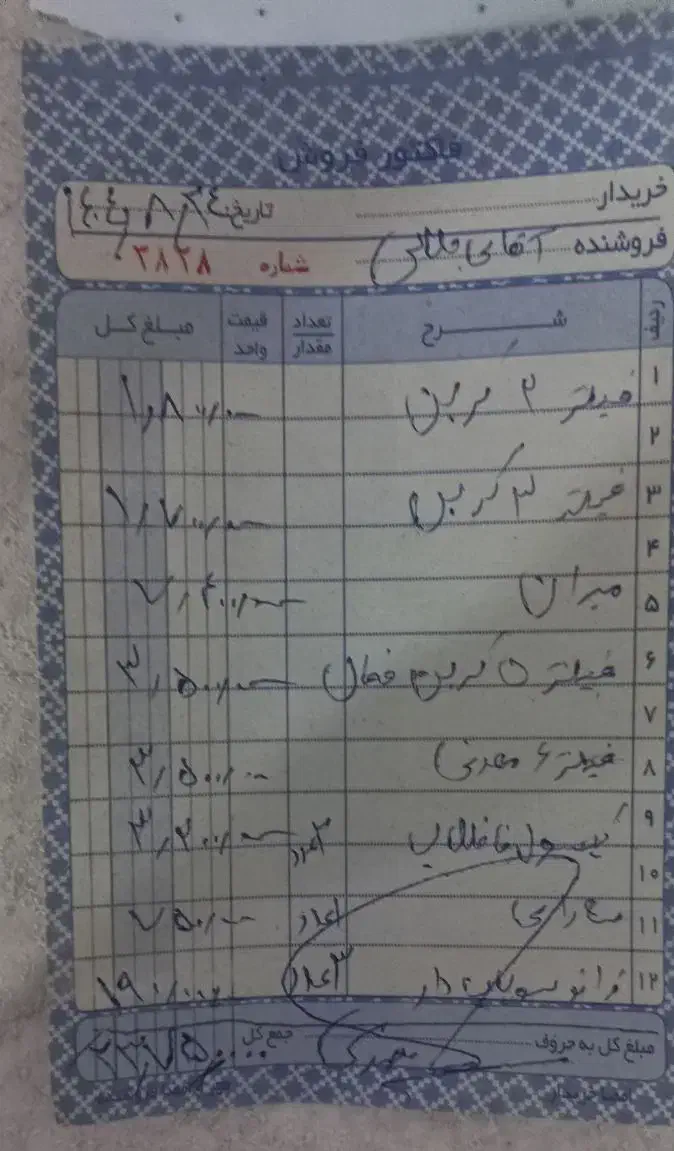 فاکتور فروش
خریدار
تاریخ: ۱۴۰۴/۸/۲۴
فروشنده آقای جلالی
شماره ۲۸۲۸
ردیف شرح تعداد مقدار قیمت واحد مبلغ کل
۱ فیلتر ۲ کربن ۱,۸۰۰,۰۰۰
۲
۳ فیلتر ۳ کربن ۱,۷۰۰,۰۰۰
۴
۵ ممبران ۷,۴۰۰,۰۰۰
۶ فیلتر ۵ کربن فعال ۳,۵۰۰,۰۰۰
۷
۸ فیلتر ۶ معدنی ۳,۵۰۰,۰۰۰
۹ ۳,۲۰۰,۰۰۰
۱۰
۱۱ ۱عدد ۷۵۰,۰۰۰
۱۲ ۱۹۰۰,۰۰۰
مبلغ کل به حروف جمع کل
امضا خریدار